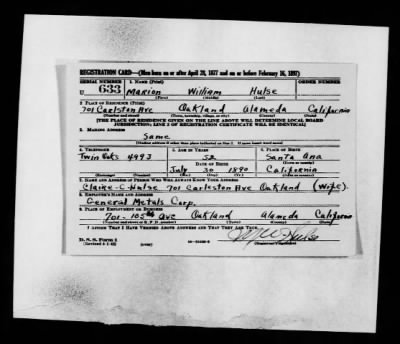 REGISTRATION CARD—(Men born on or after April 28, 1877 and on or before February 16, 1897)
SERIAL NUMBER 1. NAME (Print) ORDER NUMBER
U 633 Marion William Hulse
(First) (Middle) (Last)
2. PLACE OF RESIDENCE (Print)
701 Carlston Ave Oakland Alameda California
(Number and street) (Town, township, village, or city) (County) (State)
[THE PLACE OF RESIDENCE GIVEN ON THE LINE ABOVE WILL DETERMINE LOCAL BOARD
JURISDICTION; LINE 2 OF REGISTRATION CERTIFICATE WILL BE IDENTICAL]
3. MAILING ADDRESS
Same
[Mailing address if other than place indicated on line 2. If same insert word same]
4. TELEPHONE 5. AGE IN YEARS 6. PLACE OF BIRTH
Twin Oaks 4993 52 Santa Ana
DATE OF BIRTH (Town or county)
July 30 1890 California
(Exchange) (Number) (Mo.) (Day) (Yr.) (State or country)
7. NAME AND ADDRESS OF PERSON WHO WILL ALWAYS KNOW YOUR ADDRESS
Claire-C-Hulse 701 Carleston Ave Oakland (Wife).
8. EMPLOYER'S NAME AND ADDRESS
General Metals Corp.
9. PLACE OF EMPLOYMENT OR BUSINESS
701-105th Ave Oakland Alameda California
(Number and street or R. F. D. number) (Town) (County) (State)
I AFFIRM THAT I HAVE VERIFIED ABOVE ANSWERS AND THAT THEY ARE TRUE.
D. S. S. Form 1
(Revised 4-1-42) (over) (Registrant's signature)
Hulse